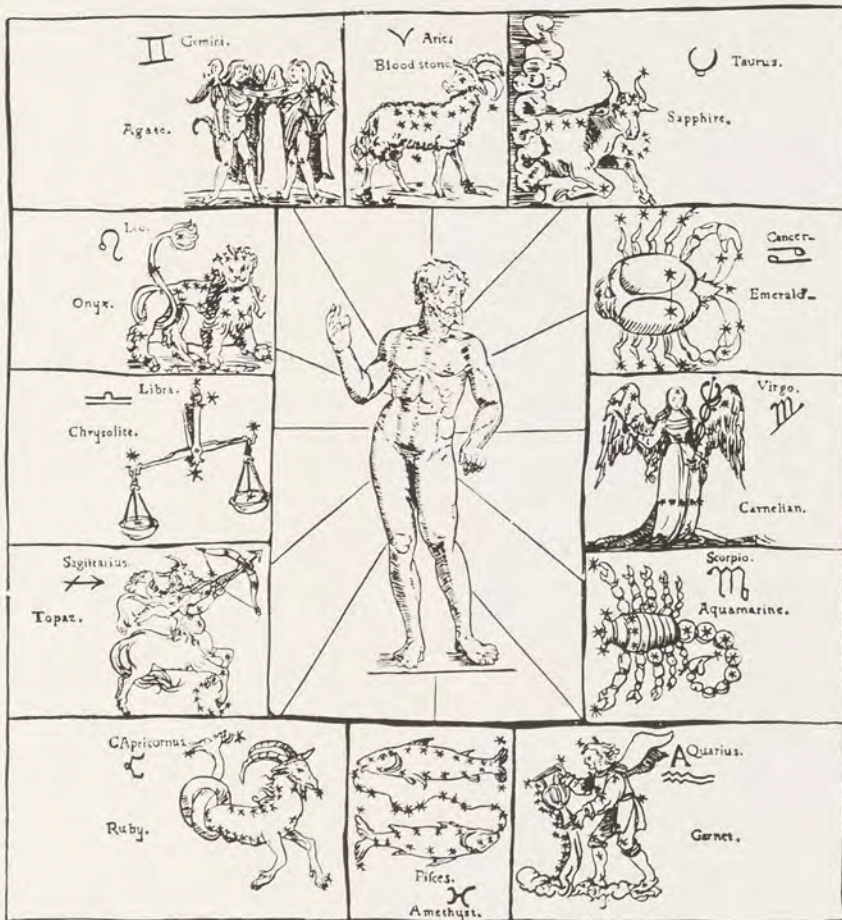 Gemini.
Agate.
Aries
Bloodstone.
Taurus.
Sapphire.
Leo.
Onyx.
Cancer.
Emerald
Libra.
Chrysolite.
Virgo.
Carnelian.
Sagittarius.
Topaz.
Scorpio.
Aquamarine.
CApricornus.
Ruby.
Pifces.
Amethyst.
AQuarius.
Garnet.